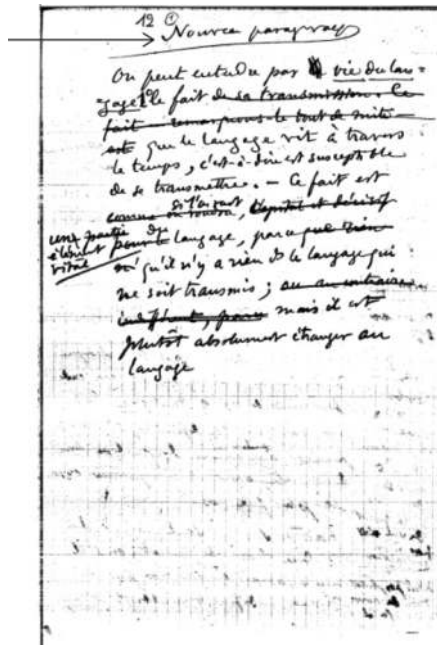 12 ①
Nouveau paragraphe
On peut entendre par vie du lan-
=gage 1° le fait de sa transmission. Ce
fait – remarquons-le tout de suite –
est que le langage vit à travers
le temps, c'est-à-dire est susceptible
de se transmettre. – Ce fait est
si l'on veut
comme on voudra, capital et décisif
une partie
élément
vitale
pour le du langage, parce que rien
n' qu'il n'y a rien ds le langage qui
ne soit transmis ; ou au contraire
indifférent, parce mais il est
plutôt absolument étranger au
langage